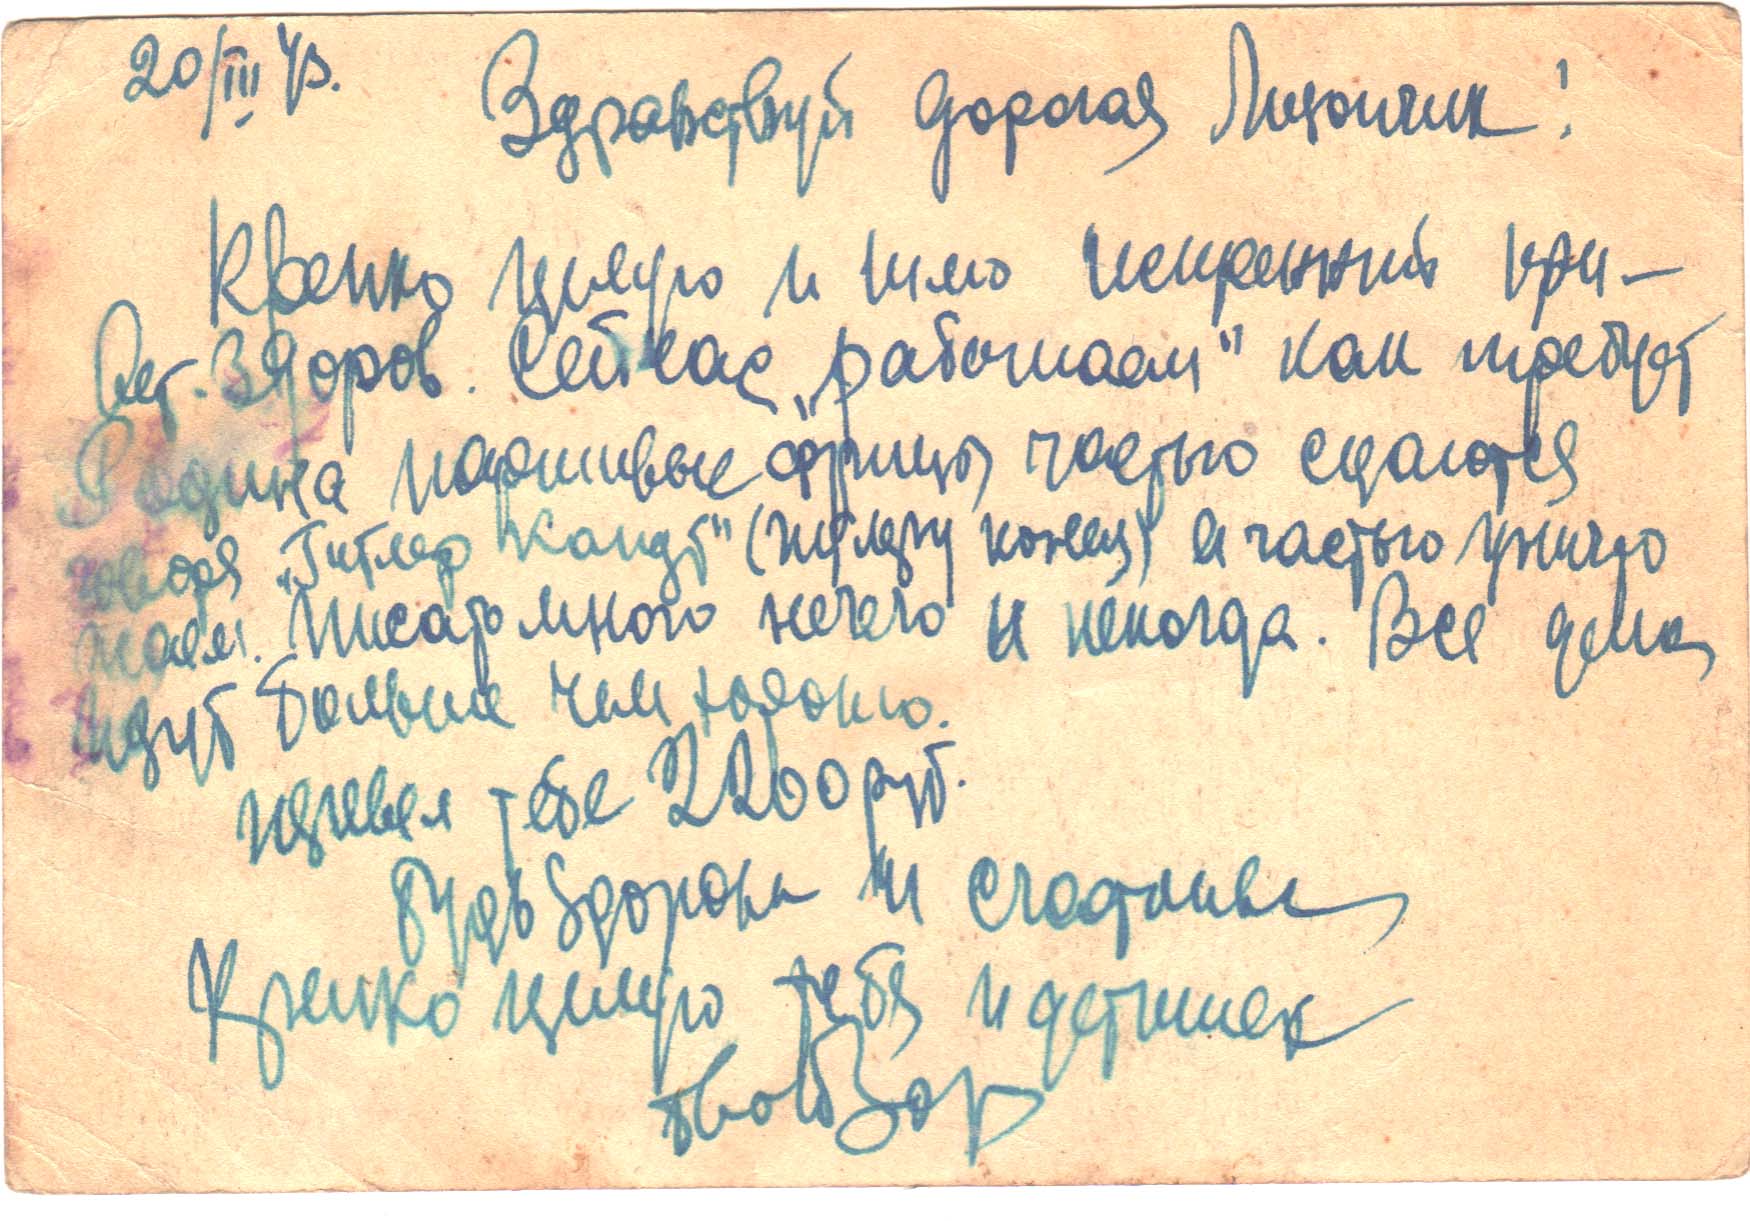 20/III 43.
Здравствуй дорогая Лизончик!
Крепко целую и шлю искренний при-
вет. Здоров. Сейчас „работаем" как требует
Родина паршивые фрицы частью сдаются
говоря „Гитлер капут" (конец) и частью уничто
жаем. Писать много нечего и некогда. Все дела
идут больше чем хорошо.
тебе 2200 руб.
Будь здорова и счастлива
Крепко целую тебя и детишек
твой